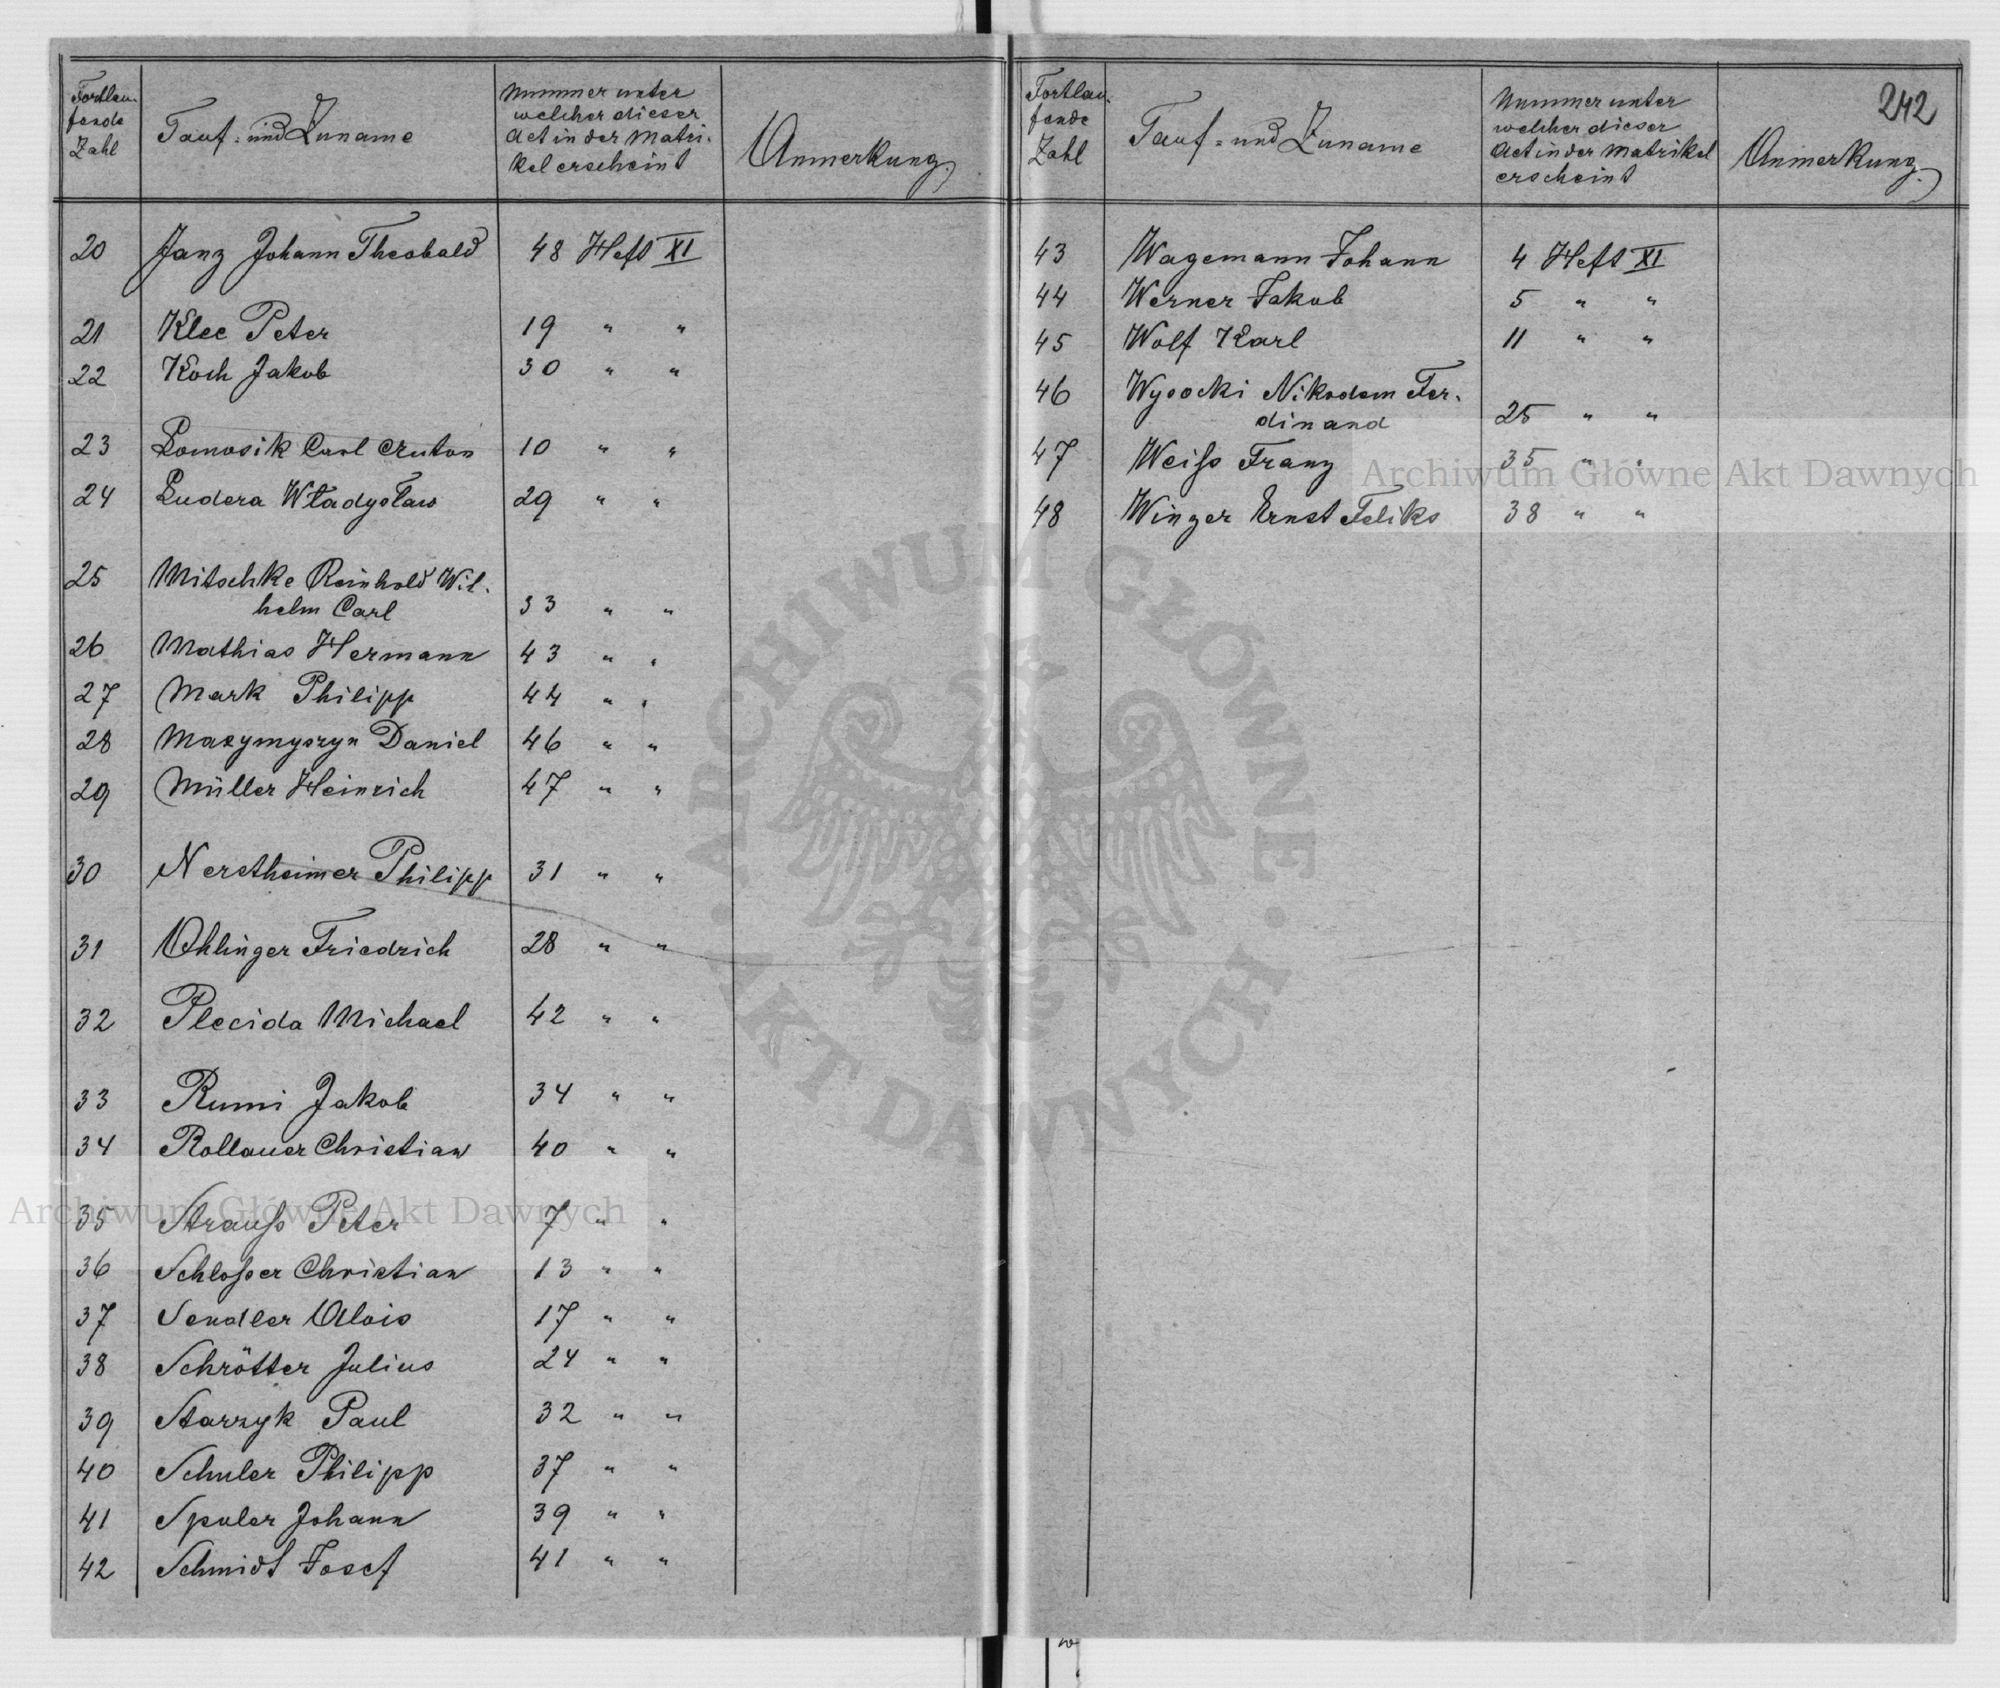 Fortlau-
fende
Zahl
Tauf- und Zuname
Nummer unter
welcher dieser
Act in der Matri-
kel erscheint
Anmerkung.
20 Janz Johann Theobald 48 Heft XI
21 Klee Peter 19 " "
22 Koch Jakob 30 " "
23 Lomosik Carl Anton 10 " "
24 Ludera Władysław 29 " "
25 Mitschke Reinhold Wil-
helm Carl 33 " "
26 Mathias Hermann 43 " "
27 Mark Philipp 44 " "
28 Maxymyszyn Daniel 46 " "
29 Müller Heinrich 47 " "
30 Nerctheimer Philipp 31 " "
31 Ohlinger Friedrich 28 " "
32 Plecida Michael 42 " "
33 Rumi Jakob 34 " "
34 Rollauer Christian 40 " "
35 Strauß Peter 7 " "
36 Schloßer Christian 13 " "
37 Sendler Alois 17 " "
38 Schrötter Julius 24 " "
39 Starzyk Paul 32 " "
40 Schuler Philipp 37 " "
41 Spuler Johann 39 " "
42 Schmidt Josef 41 " "
242
Fortlau-
fende
Zahl
Tauf- und Zuname
Nummer unter
welcher dieser
Act in der Matrikel
erscheint
Anmerkung.
43 Wagemann Johann 4 Heft XI
44 Werner Jakob 5 " "
45 Wolf Karl 11 " "
46 Wysocki Nikodem Fer-
dinand 25 " "
47 Weiß Franz 35 " "
48 Winger Ernst Feliks 38 " "
Archiwum Główne Akt Dawnych
Archiwum Główne Akt Dawnych
ARCHIWUM GŁÓWNE · AKT DAWNYCH ·